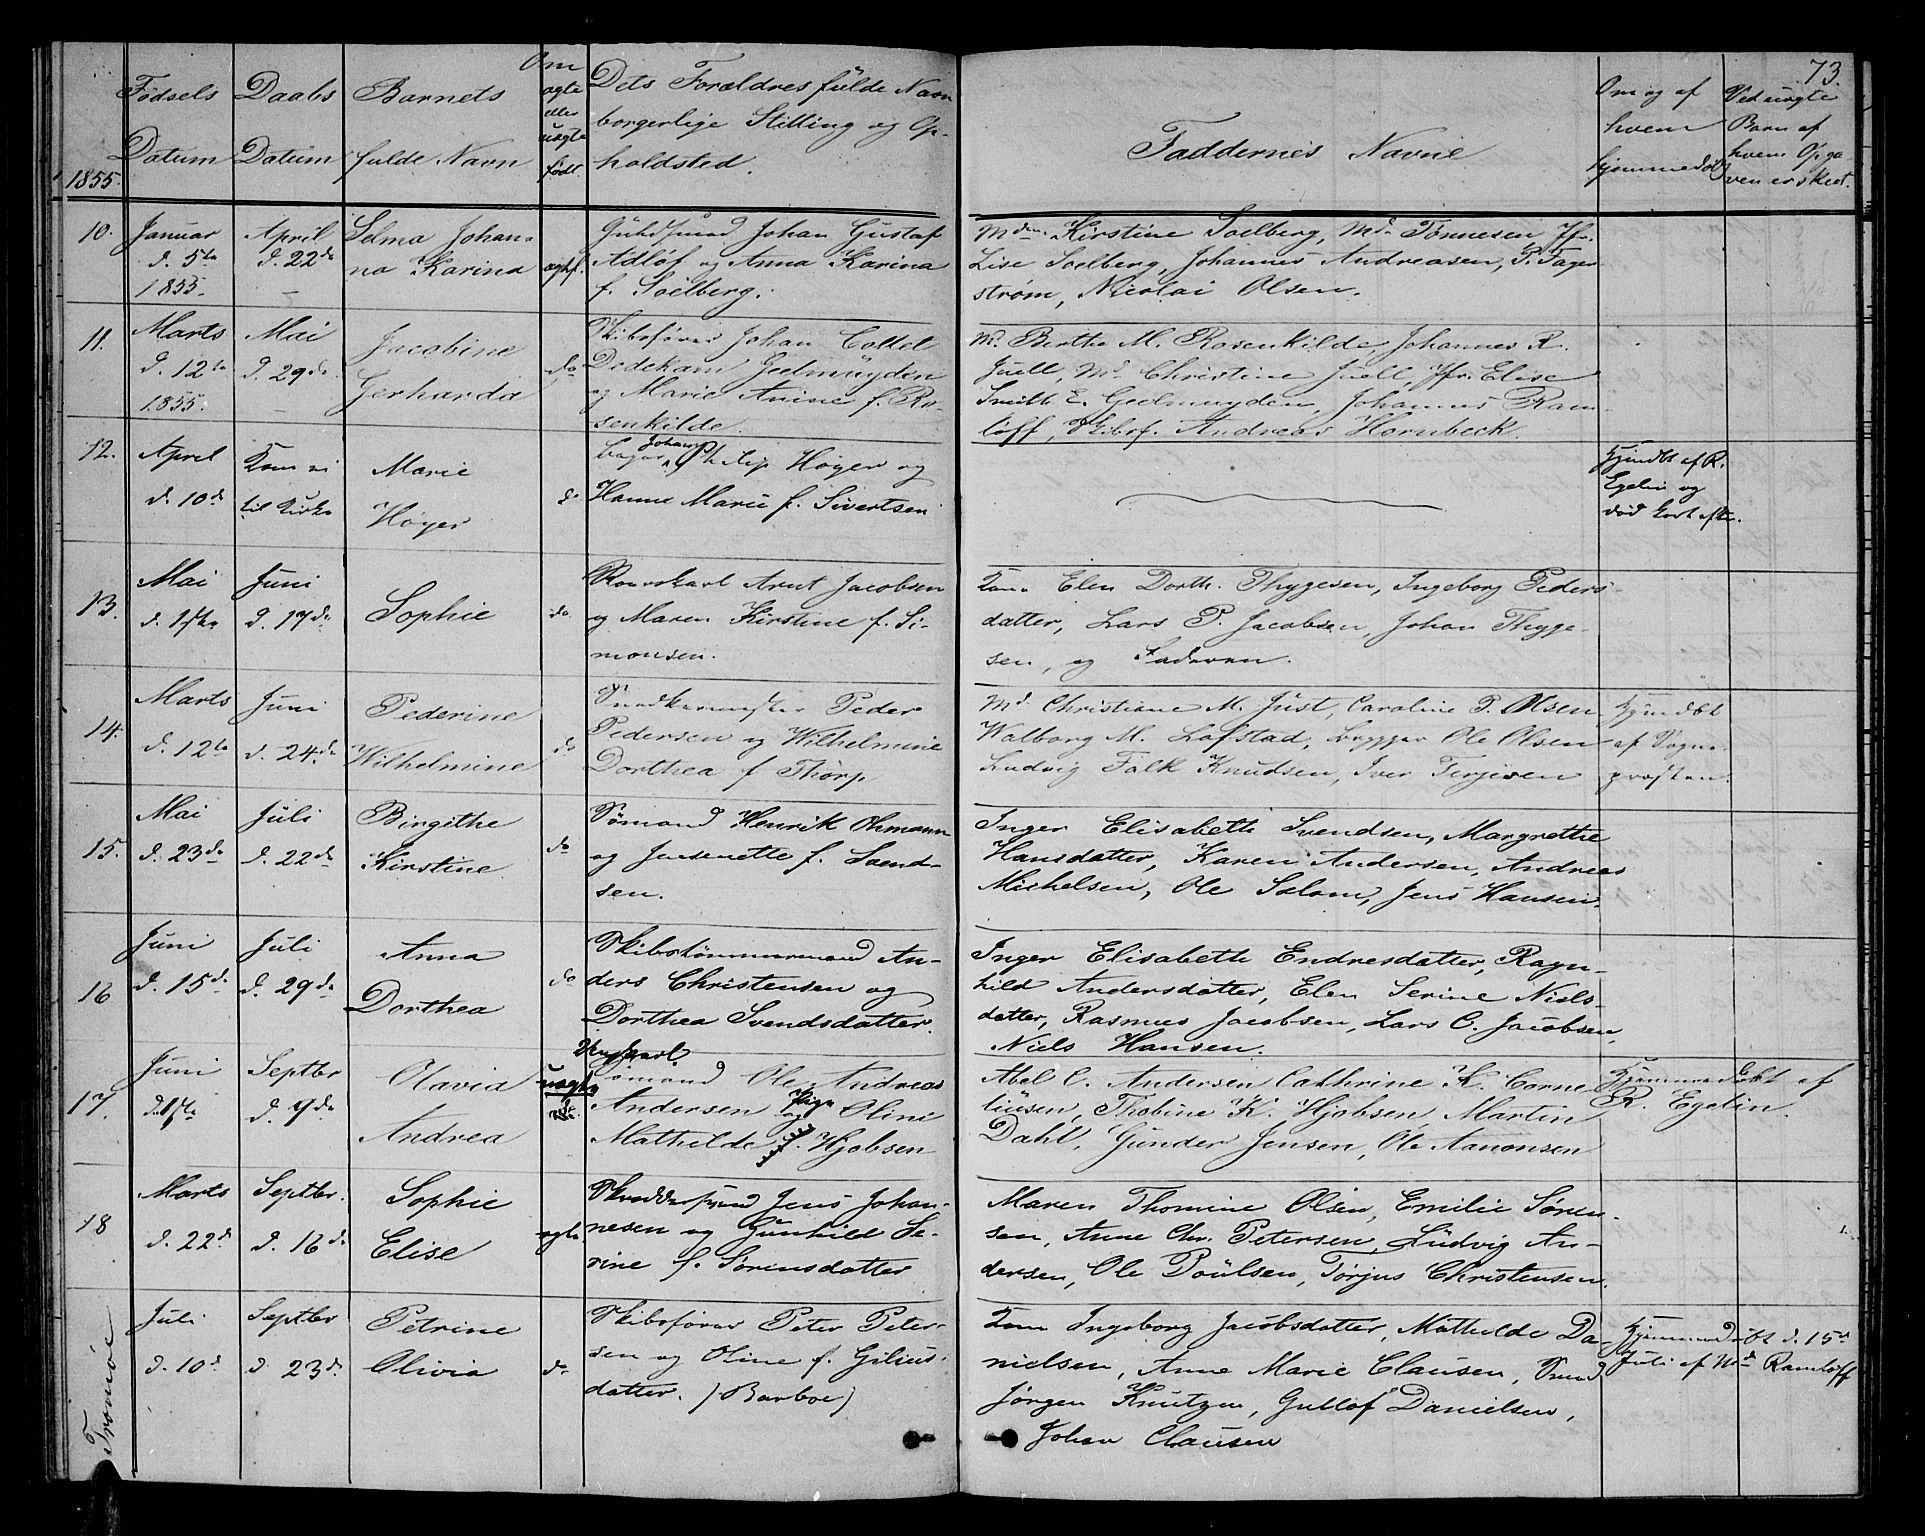 73.
1855.
Fødsels
Datum
Daabs
Datum
Barnets
fulde Navn
Om
ægte
eller
uægte
født.
Dets Forældres fulde Navn
borgerlige Stilling og Op-
holdsted.
Faddernes Navne
Om og af
hvem
hjemmedøbt
Ved uægte
Barn af
hvem Opga
ven er skeet.
10.
Januar
d. 5te
1855.
April
d. 22de
Selma Johan-
na Karina
ægtf.
Guldsmed Johan Gustaf
Adlof og Anna Karina
f. Soelberg.
Mdm. Kirstine Soelberg, Md. Tønnesen, Jfr.
Lise Soelberg, Johannes Andreasen, P. Fager
strøm, Nicolai Olsen.
11.
Marts
d. 12te
1855.
Mai
d. 29de
Jacobine
Gerharda
do
Skibsfører Johan Coltel
Dedekam Geelmuyden
og Marie Anine f. Ro-
senkilde.
Md. Berthe M. Rosenkilde, Johannes R.
Juell, Md. Christine Juell, Jfr. Elise
Smith E. Geelmuyden, Johannes Ram-
løff, Skibsf. Andreas Hornbeck.
12.
April
d. 10de
Kom ei
til Kirke
Marie
Høyer
do
Johan
Bager Philip Høyer og
Hanne Marie f. Sivertsen
Hjemdbt af R.
Egelin og
død kort efter.
13.
Mai
d. 17de
Juni
d. 17de
Sophie
do
Arnt Jacobsen
og Maren Kirstine f. Si-
monsen.
Kone Elen Dorth. Thygesen, Ingeborg Peders-
datter, Lars P. Jacobsen, Johan Thyge-
sen, og Faderen.
14.
Marts
d. 12te
Juni
d. 24de
Pederine
Wilhelmine
do
Snedkermester Peder
Pedersen og Wilhelmine
Dorthea f Thorp
Md. Christiane M. Just, Caroline P. Olsen
Walborg M. Lofstad, Brygger Ole Olsen
Ludvig Falk Knudsen, Iver Terjesen
Hjemdøbt
af Sogne-
præsten.
15.
Mai
d. 23de
Juli
d. 22de
Birgithe
Kirstine
do
Sømand Henrik Ohmann
og Jensenette f. Svend-
sen.
Inger Elisabeth Svendsen, Margrethe
Hansdatter, Karen Andersen, Andreas
Michelsen, Ole Salom, Jens Hansen.
16
Juni
d. 15de
Juli
d. 29de
Anna
Dorthea
do
Skibstømmermand An-
ders Christensen og
Dorthea Svendsdatter.
Inger Elisabeth Endresdatter, Ragn-
hild Andersdatter, Elen Serine Niels-
datter, Rasmus Jacobsen, Lars C. Jacobsen,
Niels Hansen.
17.
Juni
d. 17de
Septbr
d. 9de
Olavia
Andrea
uægte
Ungkarl
Sømand Ole Andreas
Andersen og Pige Oline
Mathilde f. Hjobsen
Abel C. Andersen, Cathrine K. Corne
liusen, Thobine K. Hjobsen, Martin
Dahl, Gunder Jensen, Ole Aanonsen
Hjemmedøbt af
R. Egelin.
18
Marts
d. 22de
Septbr.
d. 16de
Sophie
Elise
ægte
Skræddersvend Jens Johan-
nesen og Gunhild Se-
rine f. Sørensdatter
Maren Thomine Olsen, Emilie Søren-
sen, Anne Chr. Petersen, Ludvig An-
dersen, Ole Poulsen, Tørjus Christensen.
Tromøe
Juli
d. 10de
Septbr
d. 23de
Petrine
Olivia
do
Skibsfører Peter Peter-
sen og Oline f. Gilius-
datter. (Barboe)
Kone Ingeborg Jacobsdatter, Mathilde Da-
nielsen, Anne Marie Clausen,
Jørgen Knutzen, Gullof Danielsen,
Johan Clausen
Hjemmedøbt d. 15de
Juli af Md. Ramløff